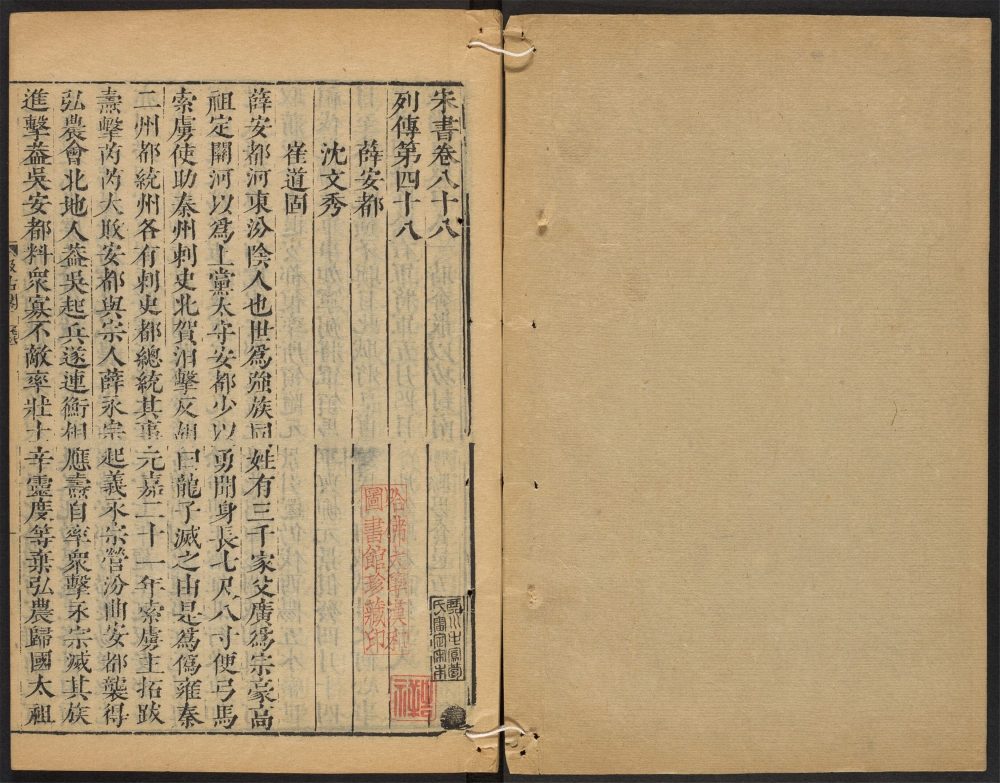 宋書卷八十八
列傳第四十八
薛安都
沈文秀
崔道固
薛安都河東汾陰人也世爲強族同姓有三千家父廣爲宗豪高
祖定關河以爲上黨太守安都少以勇聞身長七尺八寸便弓馬
索虜使助秦州刺史北賀汨擊反胡白龍子滅之由是爲僞雍秦
二州都統州各有刺史都總統其事元嘉二十一年索虜主拓跋
燾擊芮芮大敗安都與宗人薛永宗起義永宗營汾曲安都襲得
弘農會北地人蓋吳起兵遂連衡相應燾自率衆擊永宗滅其族
進擊蓋吳安都料衆寡不敵率壯士辛靈度等棄弘農歸國太祖
哈佛大學漢和
圖書館珍藏印